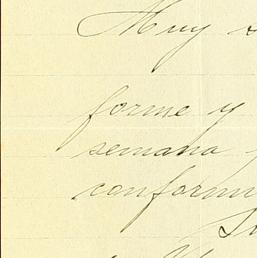 Muy
forme y
semana
conform